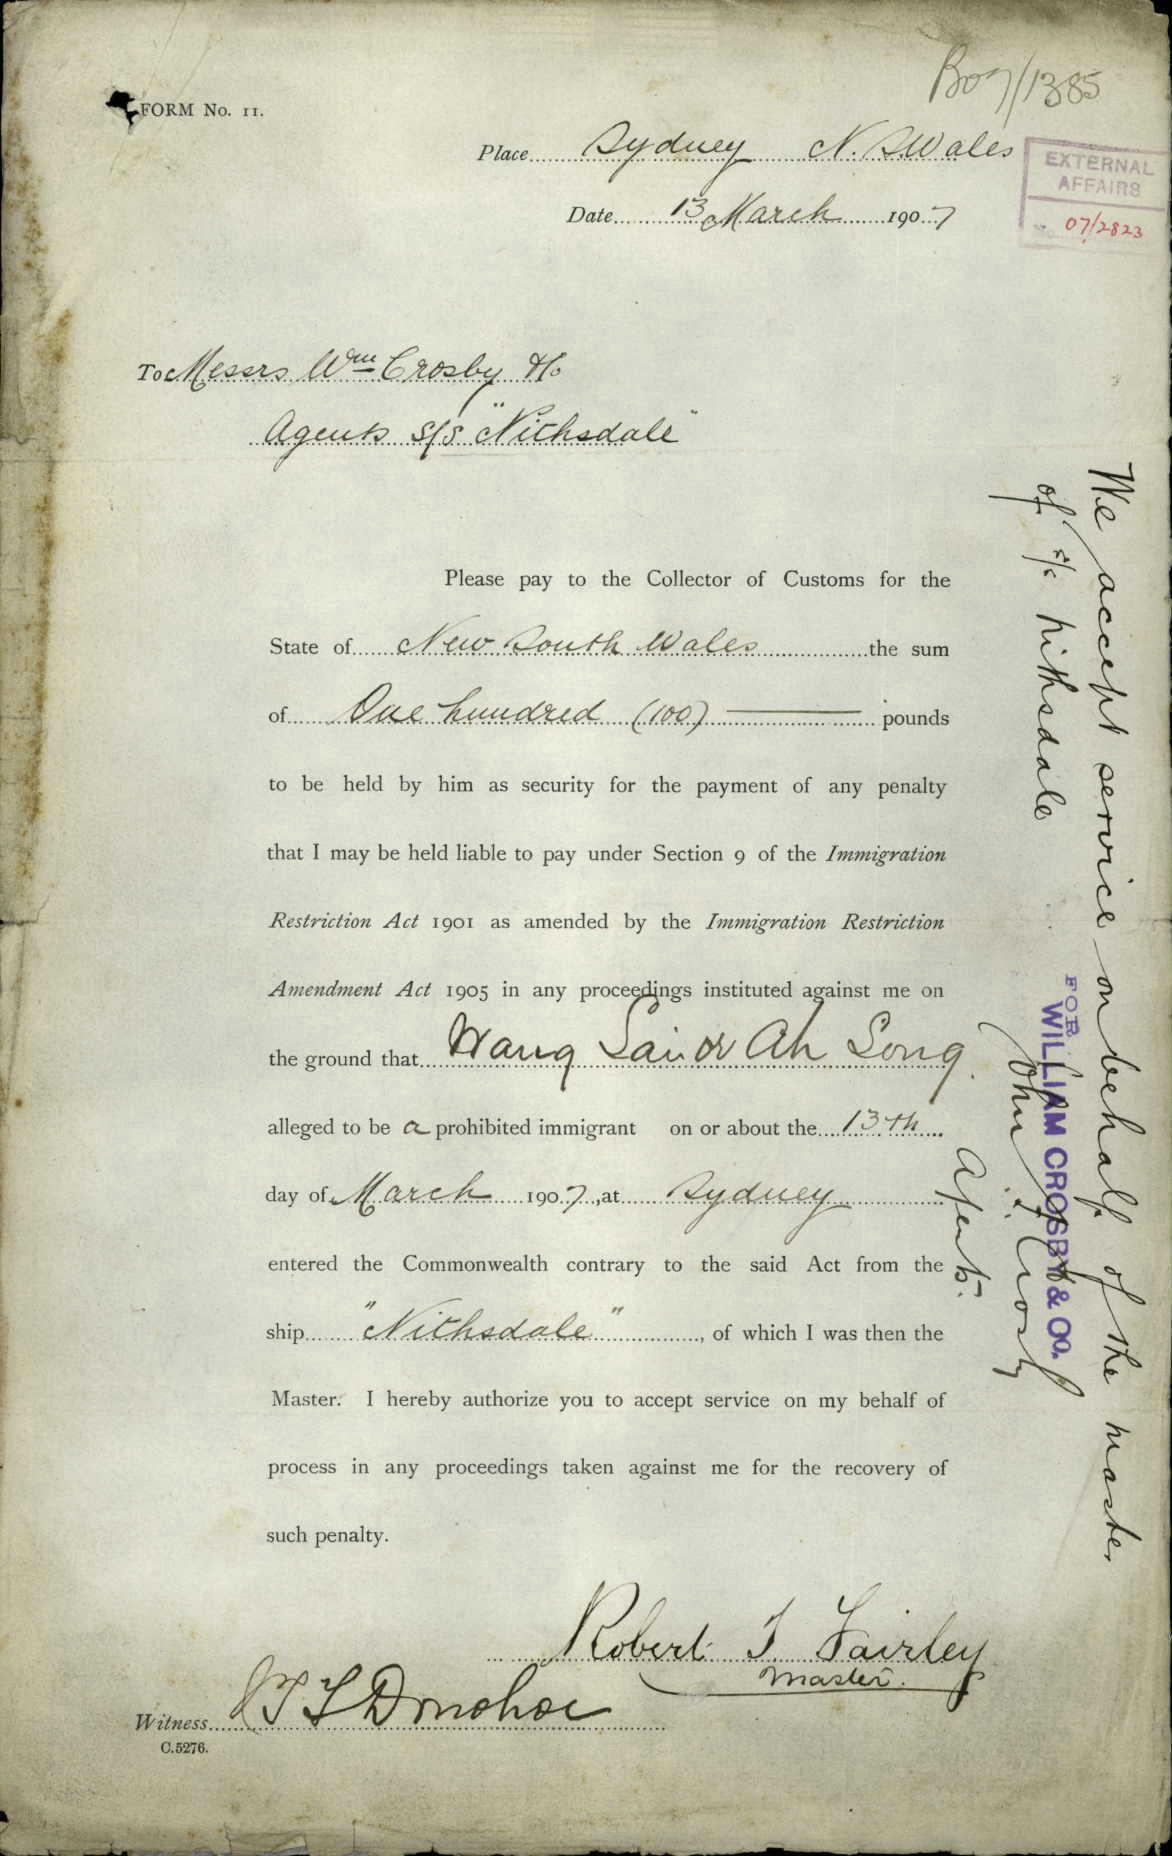 B07/1385
FORM No. 11.
Place Sydney N. S Wales
EXTERNAL
AFFAIRS
No. 07/2823
Date 13 March 1907
To Messrs Wm Crosby & Co
Agents S/S "Nithsdale"
Please pay to the Collector of Customs for the
State of New South Wales the sum
of One hundred (100) pounds
to be held by him as security for the payment of any penalty
that I may be held liable to pay under Section 9 of the Immigration
Restriction Act 1901 as amended by the Immigration Restriction
Amendment Act 1905 in any proceedings instituted against me on
the ground that Wang Sai or Ah Song
alleged to be a prohibited immigrant on or about the 13th
day of March 1907, at Sydney
entered the Commonwealth contrary to the said Act from the
ship "Nithsdale", of which I was then the
Master. I hereby authorize you to accept service on my behalf of
process in any proceedings taken against me for the recovery of
such penalty.
Robert T. Fairley
Master.
Witness J T T Donohoe
C.5276.
We accept service on behalf of the master
of s/s Nithsdale
FOR
WILLIAM CROSBY & CO.
Crosby
Agents.